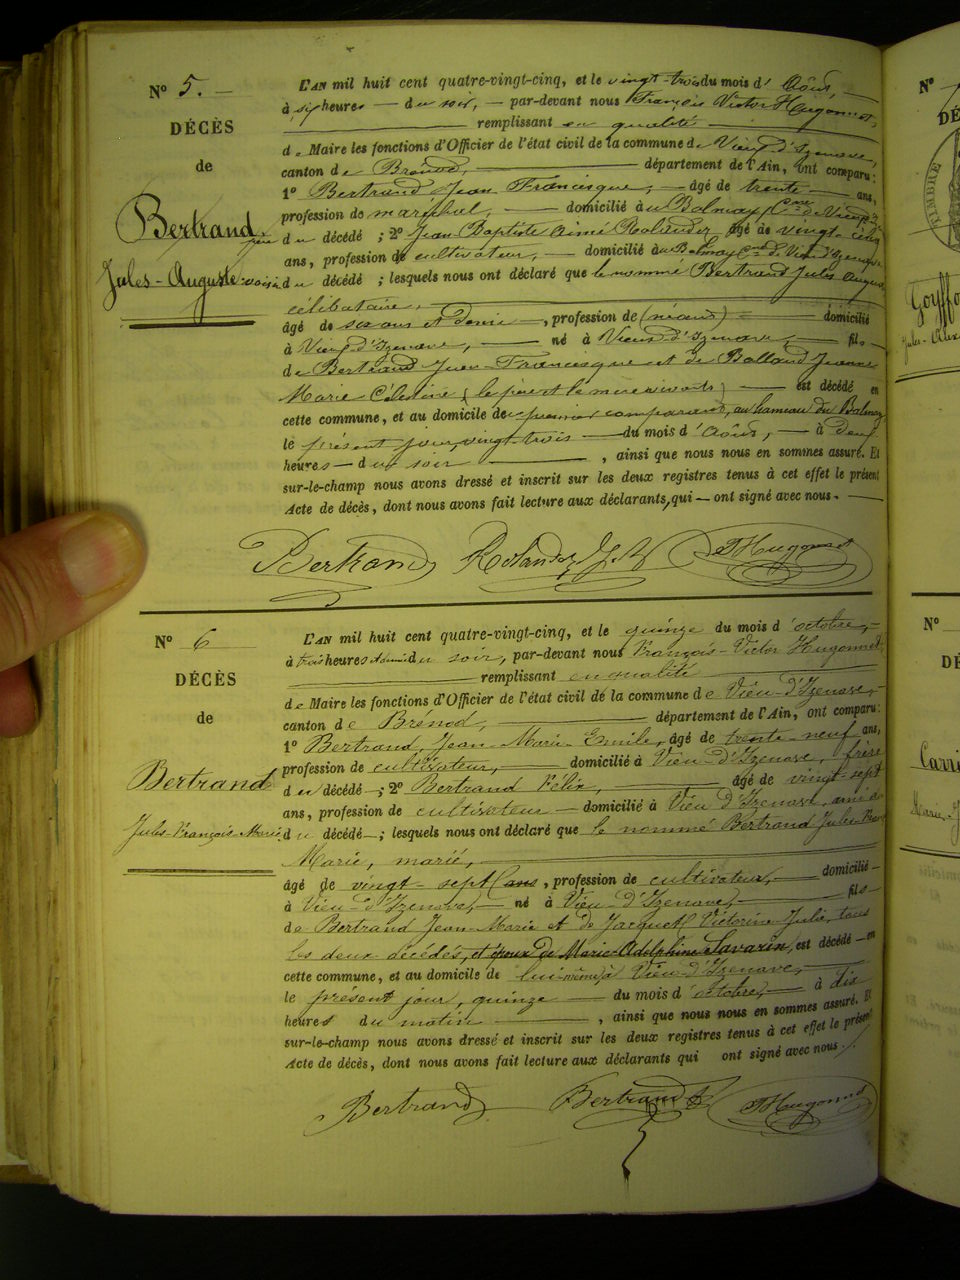 N° 5. —
DÉCÈS
de
Bertrand
Jules-Auguste
L'AN mil huit cent quatre-vingt-cinq, et le vingt-trois du mois d'Août —
à six heures — du soir, — par-devant nous François Victor Hugonnet,
remplissant en qualité
de Maire les fonctions d'Officier de l'état civil de la commune de Vieu-d'Izenave,
canton de Brénod, — département de l'Ain, ont comparu :
1° Bertrand Jean Francisque, — âgé de trente — ans,
profession de maréchal, — domicilié au Balmay Cne de Vieu-d'Iz
père du décédé ; 2° Jean Baptiste Aimé Rolandez âgé de vingt-cinq
ans, profession de cultivateur, — domicilié au Balmay Cne de Vieu d'Izenave
voisin du décédé ; lesquels nous ont déclaré que le nommé Bertrand Jules Auguste
célibataire,
âgé de six ans et demi —, profession de (néant) — domicilié
à Vieu-d'Izenave, — né à Vieu-d'Izenave, — fils
de Bertrand Jean-Francisque et de Balland Jeanne
Marie-Célestine (le père et la mère vivants) — est décédé en
cette commune, et au domicile du premier comparant, au hameau du Balmay
le présent jour, vingt-trois — du mois d'Août, — à deux
heures — du soir —, ainsi que nous nous en sommes assuré. Et
sur-le-champ nous avons dressé et inscrit sur les deux registres tenus à cet effet le présent
Acte de décès, dont nous avons fait lecture aux déclarants, qui — ont signé avec nous. —
Bertrand Rolandez J. B. Hugonnet
N° 6
DÉCÈS
de
Bertrand
Jules-François-Marie
L'AN mil huit cent quatre-vingt-cinq, et le quinze du mois d'octobre, —
à trois heures et demi du soir, par-devant nous François-Victor Hugonnet
remplissant en qualité
de Maire les fonctions d'Officier de l'état civil de la commune de Vieu-d'Izenave, —
canton de Brénod, — département de l'Ain, ont comparu :
1° Bertrand, Jean-Marie-Emile, âgé de trente-neuf ans,
profession de cultivateur, — domicilié à Vieu-d'Izenave, frère
du décédé — ; 2° Bertrand Félix, — âgé de vingt-sept
ans, profession de cultivateur — domicilié à Vieu d'Izenave, ami
du décédé — ; lesquels nous ont déclaré que le nommé Bertrand Jules-
Marie, marié,
âgé de vingt-sept (ans, profession de cultivateur, — domicilié —
à Vieu-d'Izenave, — né à Vieu-d'Izenave, — fils —
de Bertrand Jean-Marie et de Jacquet, Victorine-Julie, tous
les deux décédés, et époux de Marie-Adelphine Savarin, est décédé — en
cette commune, et au domicile de lui-même, à Vieu-d'Izenave, —
le présent jour, quinze — du mois d'octobre, — à dix
heures du matin —, ainsi que nous nous en sommes assuré. Et
sur-le-champ nous avons dressé et inscrit sur les deux registres tenus à cet effet le présent
Acte de décès, dont nous avons fait lecture aux déclarants qui ont signé avec nous.
Bertrand Bertrand f. Hugonnet
N°
TIMBRE
Goyffo
N°
Carri